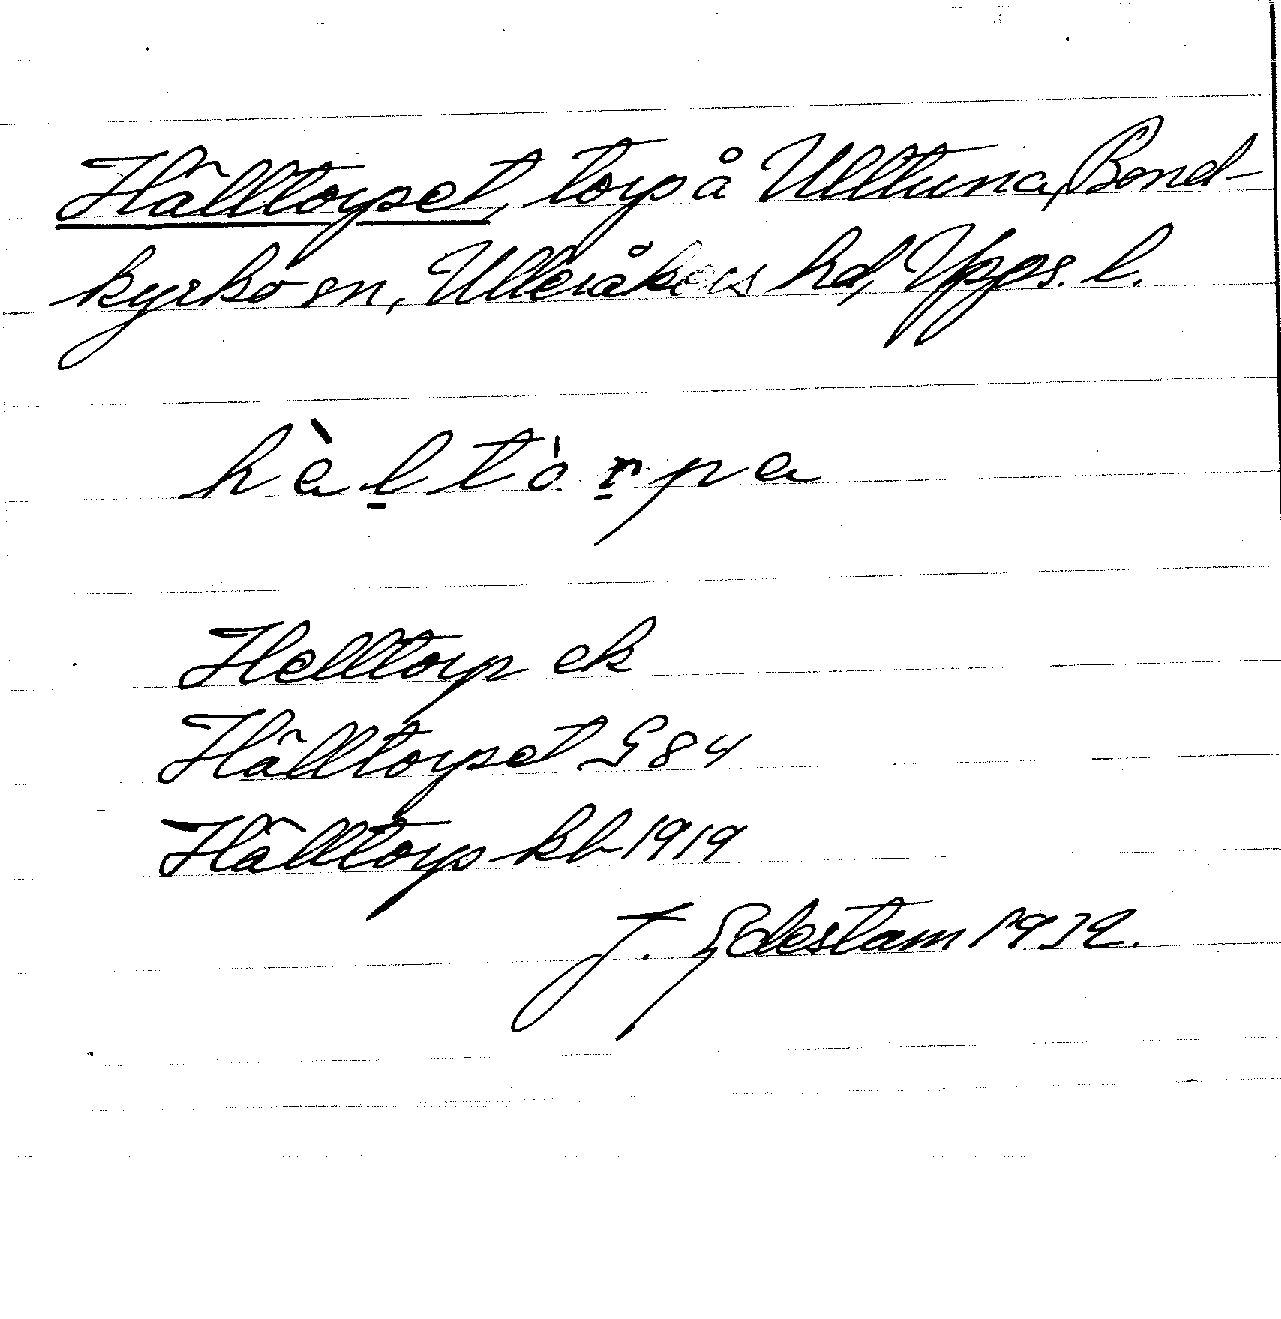 Hälltorpet, torp å Ulltuna, Bond-
kyrko sn, Ulleråkers hd, Upps. l.
hàltòrpa
Helltorp ek
Hälltorpet G 84
Hälltorp kb 1919
J. Edestam 1932.